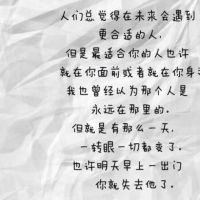 人们总觉得在未来会遇到
更合适的人,
但是最适合你的人也许
就在你面前或者就在你身
我也曾经以为那个人是
永远在那里的。
但就是有那么一天,
一转眼一切都变了。
也许明天早上一出门
你就失去他了。